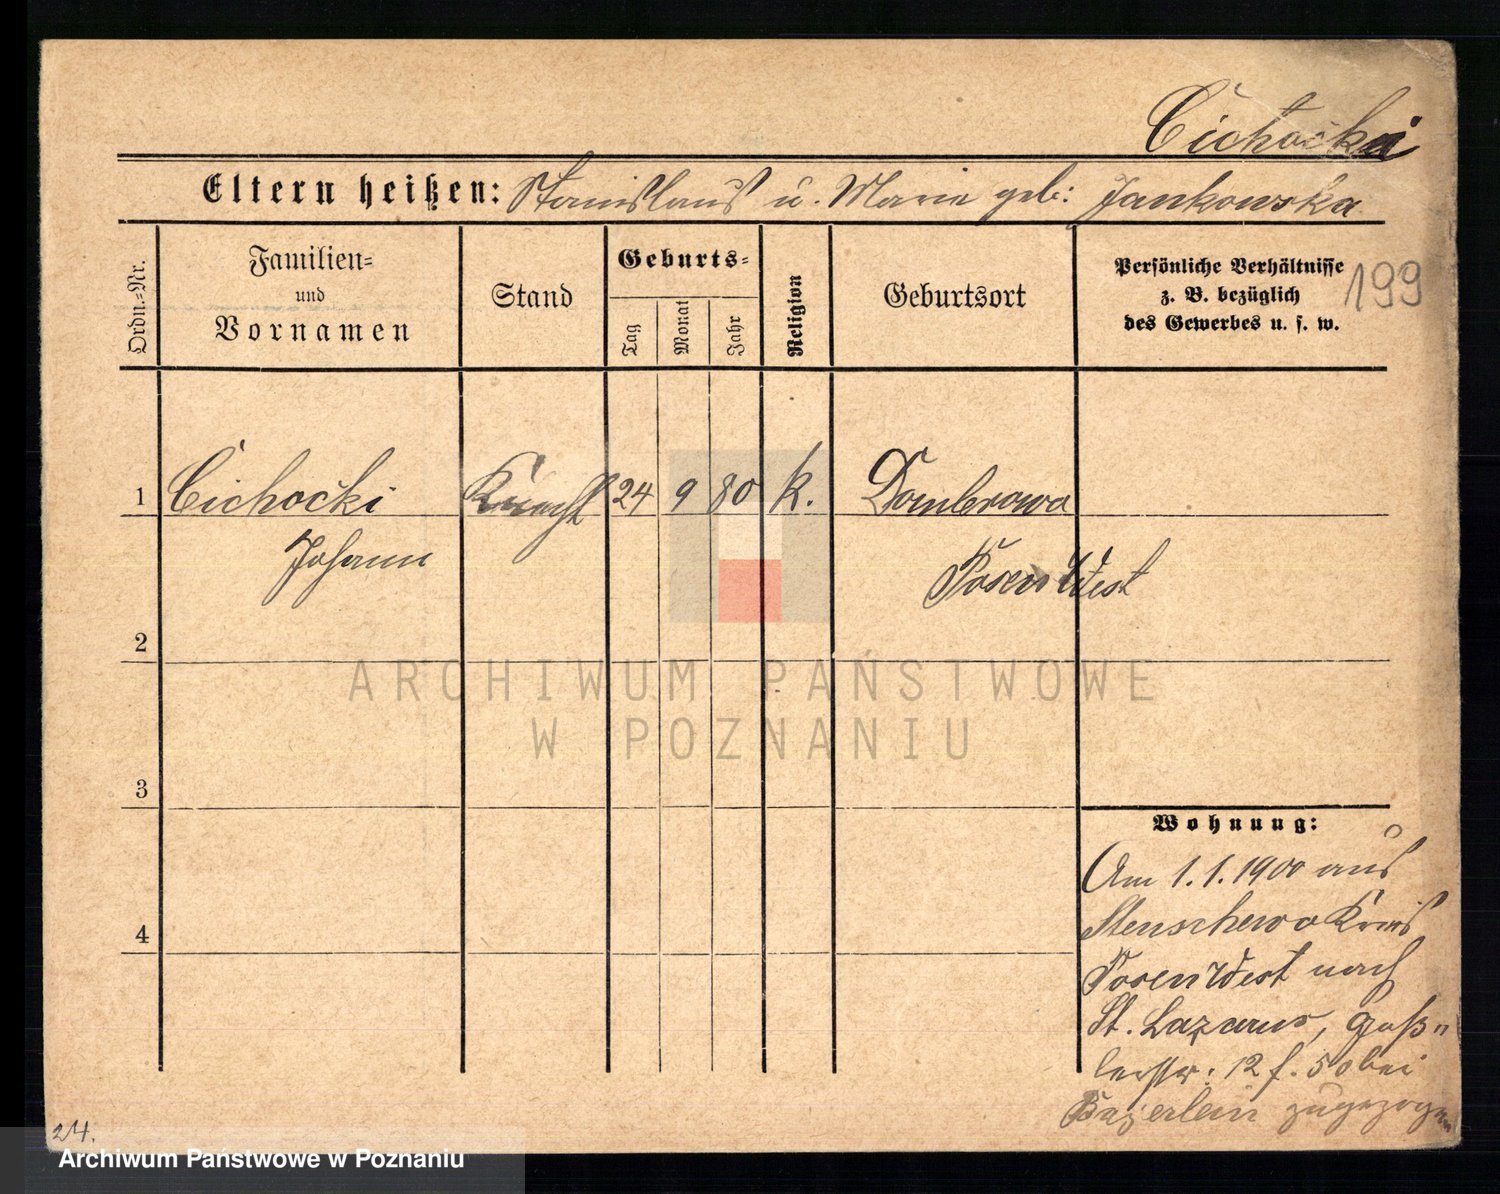 Cichocki
Eltern heißen: Stanislaus u. Marie geb: Jankowska
Ordn.-Nr.
Familien-
und
Vornamen
Stand
Geburts-
Tag
Monat
Jahr
Religion
Geburtsort
Persönliche Verhältnisse
z. B. bezüglich
des Gewerbes u. s. w.
199
1 Cichocki Knecht 24 9 80 k. Dombrowo
Johann Posen West
2
3
4
Wohnung:
Am 1.1.1900 aus
Stenschewo Kreis
Posen West nach
St. Lazarus,
12 f. 50 bei
zugezogen
24.
ARCHIWUM PAŃSTWOWE
W POZNANIU
Archiwum Państwowe w Poznaniu